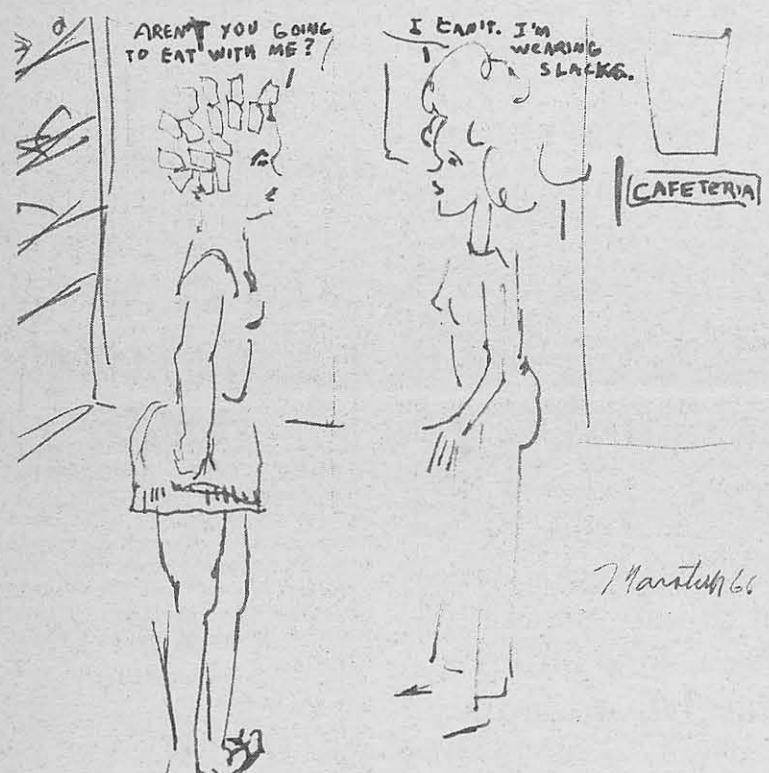 AREN'T YOU GOING
TO EAT WITH ME?
I CAN'T. I'M
WEARING
SLACKS.
CAFETERIA
66